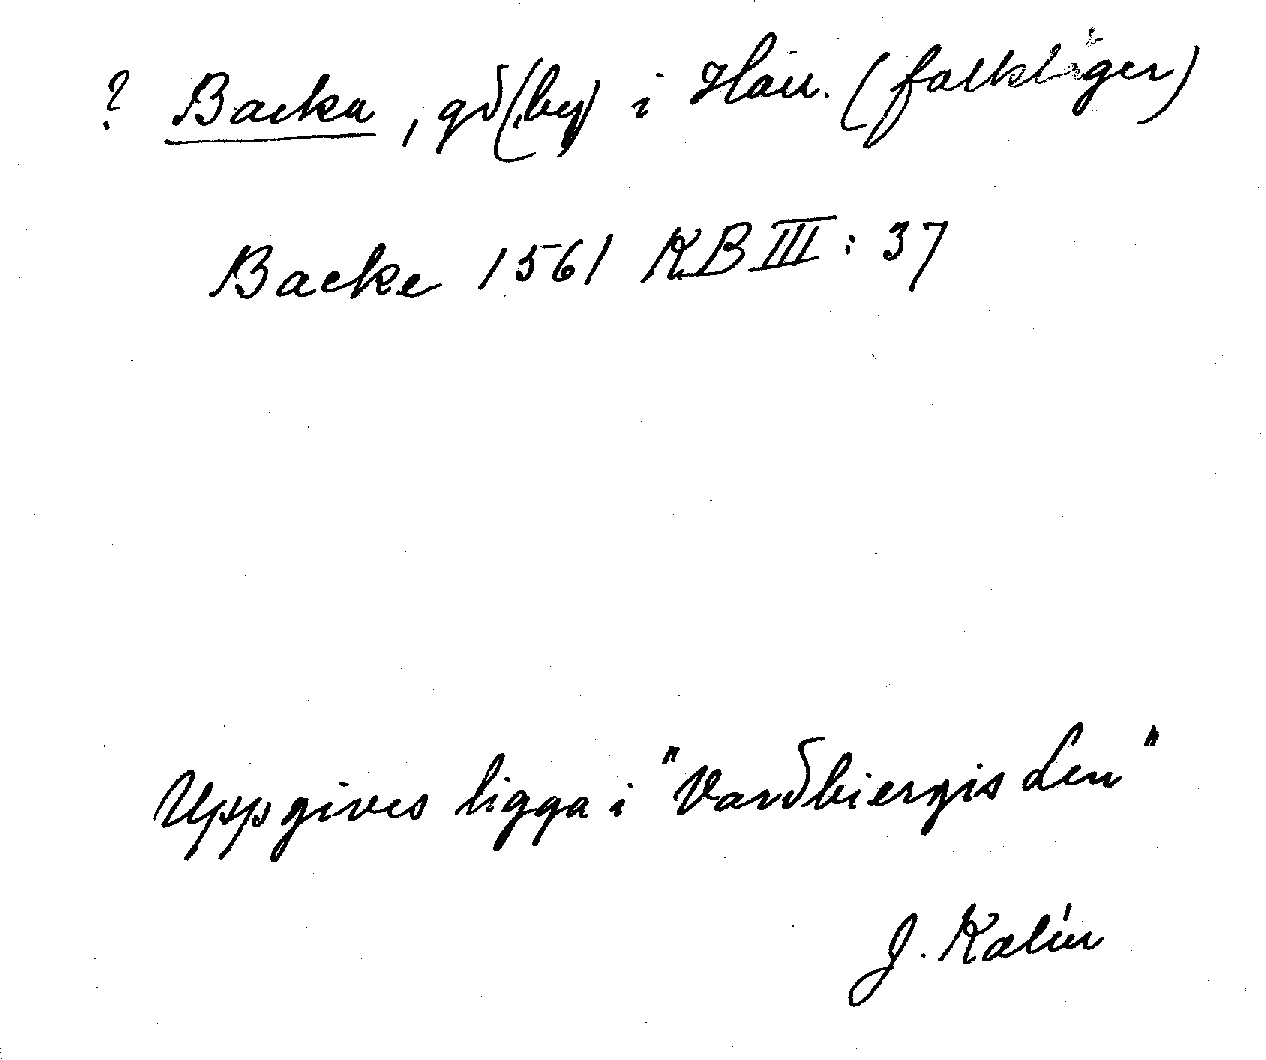 ? Backa, gd (by) i Häll. (folkläger)
Backe 1561 KB III: 37
Uppgives ligga i "Vardbiergis Len"
J. Kalén